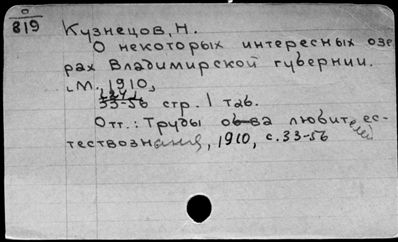 о
819
Кузнецов, Н.
О некоторых интересных озе
рах Владимирской губернии.
М., 1910,
33-56 стр. 1 таб.
Отт.: Труды об-ва любителей ес-
тествознания, 1910, с. 33-56